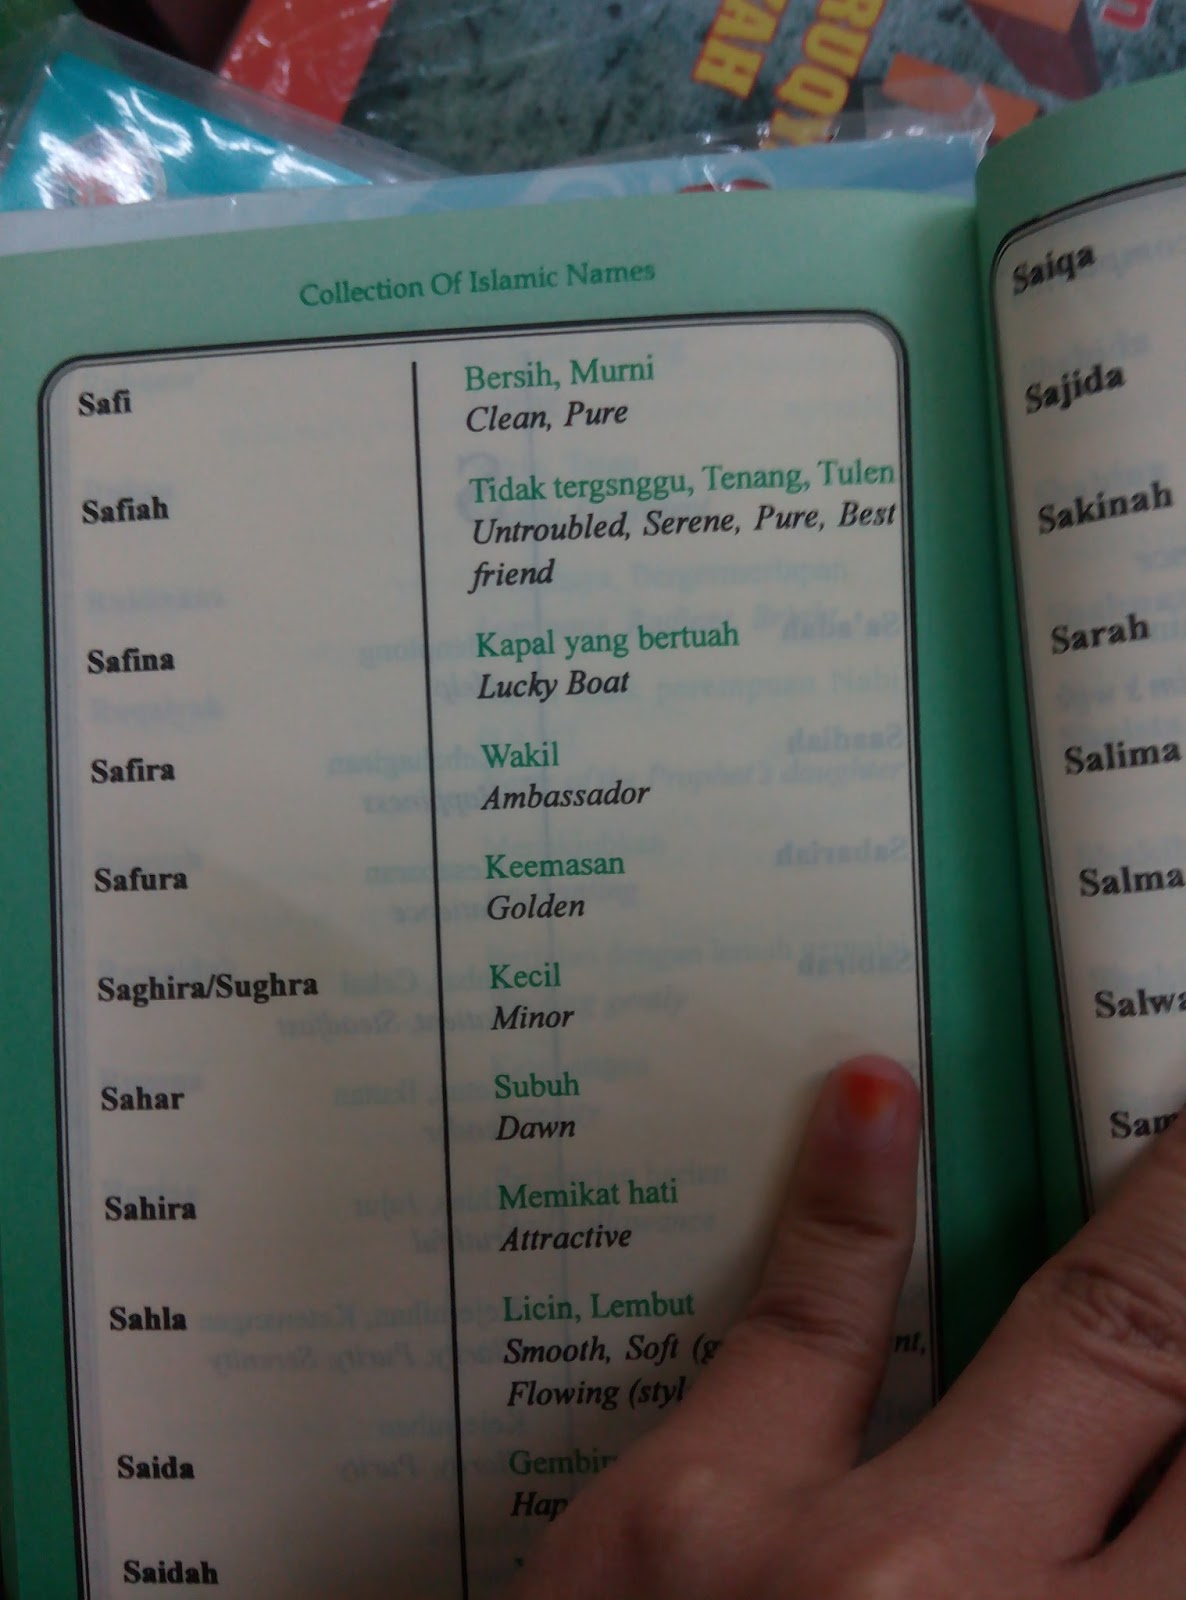 RUQY
YAH
Collection Of Islamic Names
Safi
Bersih, Murni
Clean, Pure
Safiah
Tidak tergsnggu, Tenang, Tulen
Untroubled, Serene, Pure, Best
friend
Safina
Kapal yang bertuah
Lucky Boat
Safira
Wakil
Ambassador
Safura
Keemasan
Golden
Saghira/Sughra
Kecil
Minor
Sahar
Subuh
Dawn
Sahira
Memikat hati
Attractive
Sahla
Licin, Lembut
Smooth, Soft
Flowing
Saida
Saidah
Saiqa
Sajida
Sakinah
Sarah
Salima
Salma